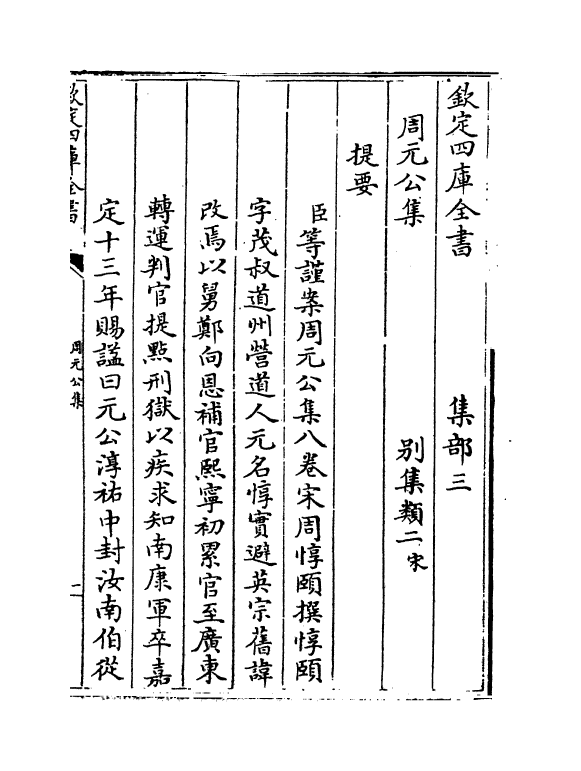 欽定四庫全書 集部三
周元公集 别集類二宋
提要
臣等謹案周元公集八卷宋周惇頤撰惇頤
字茂叔道州營道人元名惇實避英宗舊諱
改焉以舅鄭向恩補官熙寧初累官至廣東
轉運判官提點刑獄以疾求知南康軍卒嘉
定十三年賜諡曰元公淳祐中封汝南伯從
欽定四庫全書
周元公集